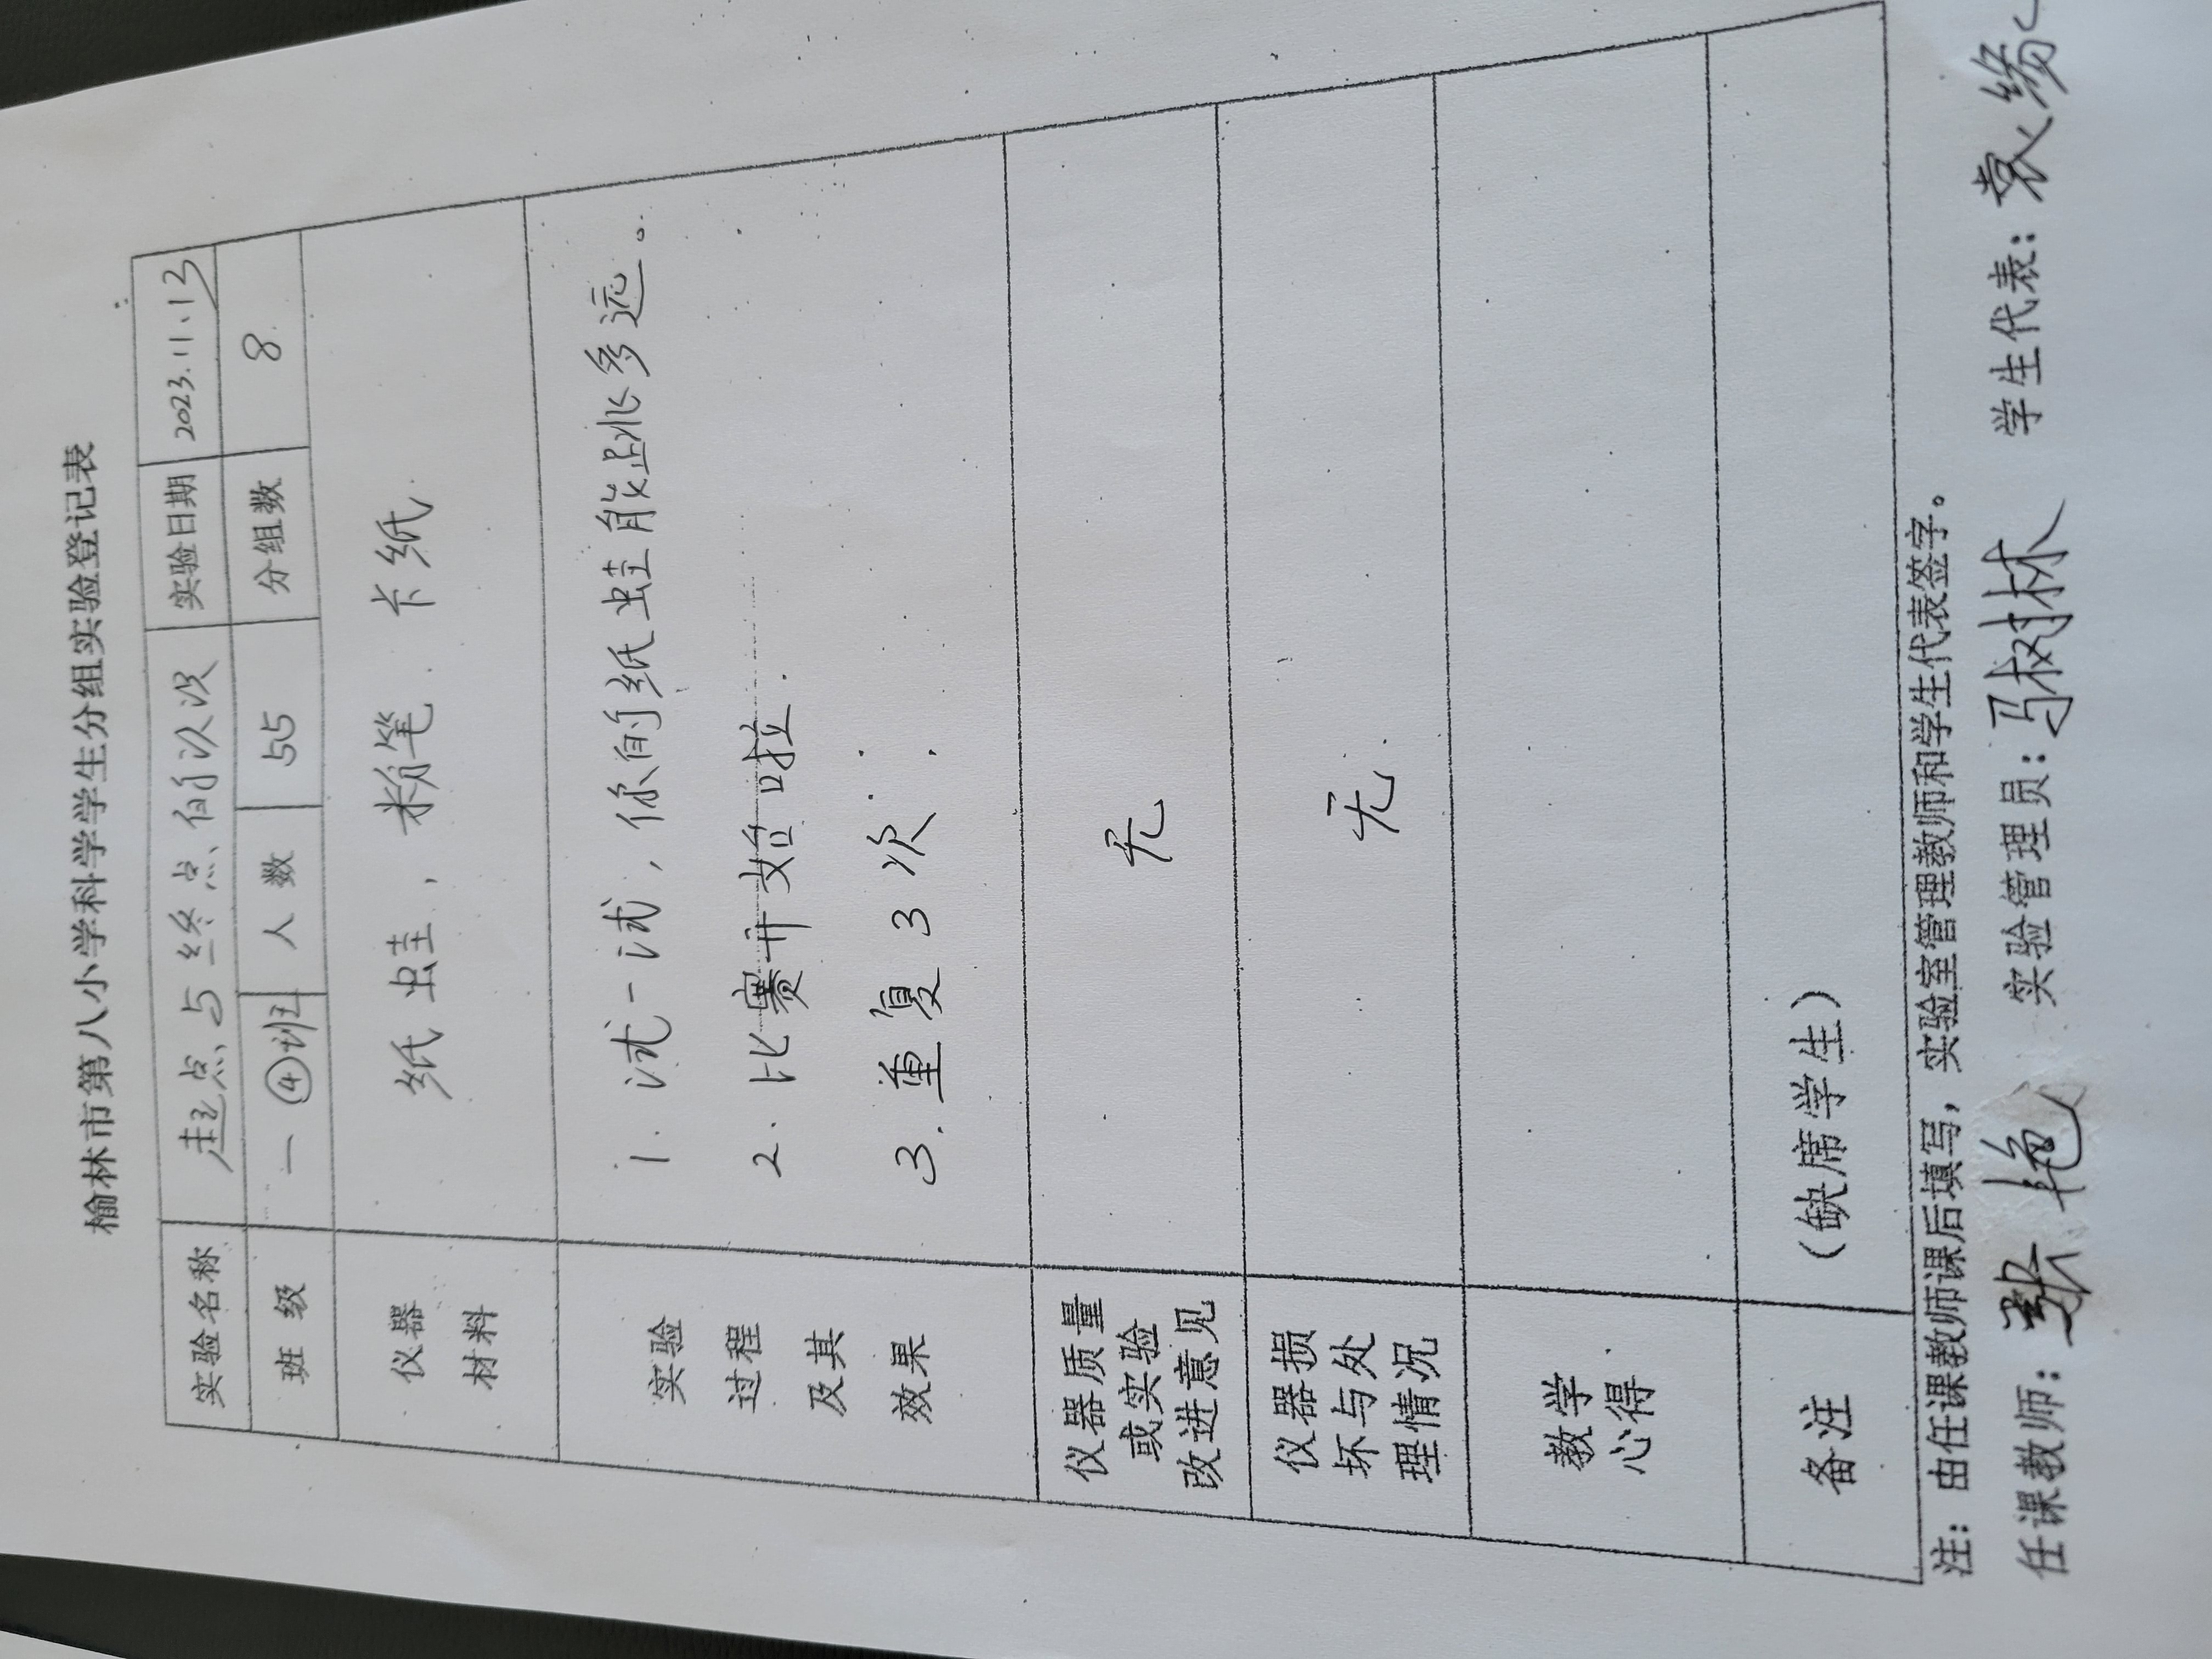 榆林市第八小学科学学生分组实验登记表
实验名称 起点与终点 实验日期 2023.11.13
班级 一④班 人数 55 分组数 8
仪器材料 纸蛙、粉笔、卡纸
实验过程及其效果
1. 试一试，你的纸蛙能跳多远。
2. 比赛开始啦.
3. 重复3次.
仪器质量或实验改进意见 无
仪器损坏与处理情况 无.
教学心得
备注 (缺席学生)
注：由任课教师课后填写，实验室管理教师和学生代表签字。
任课教师：张艳 实验管理员：马树林 学生代表：袁缘